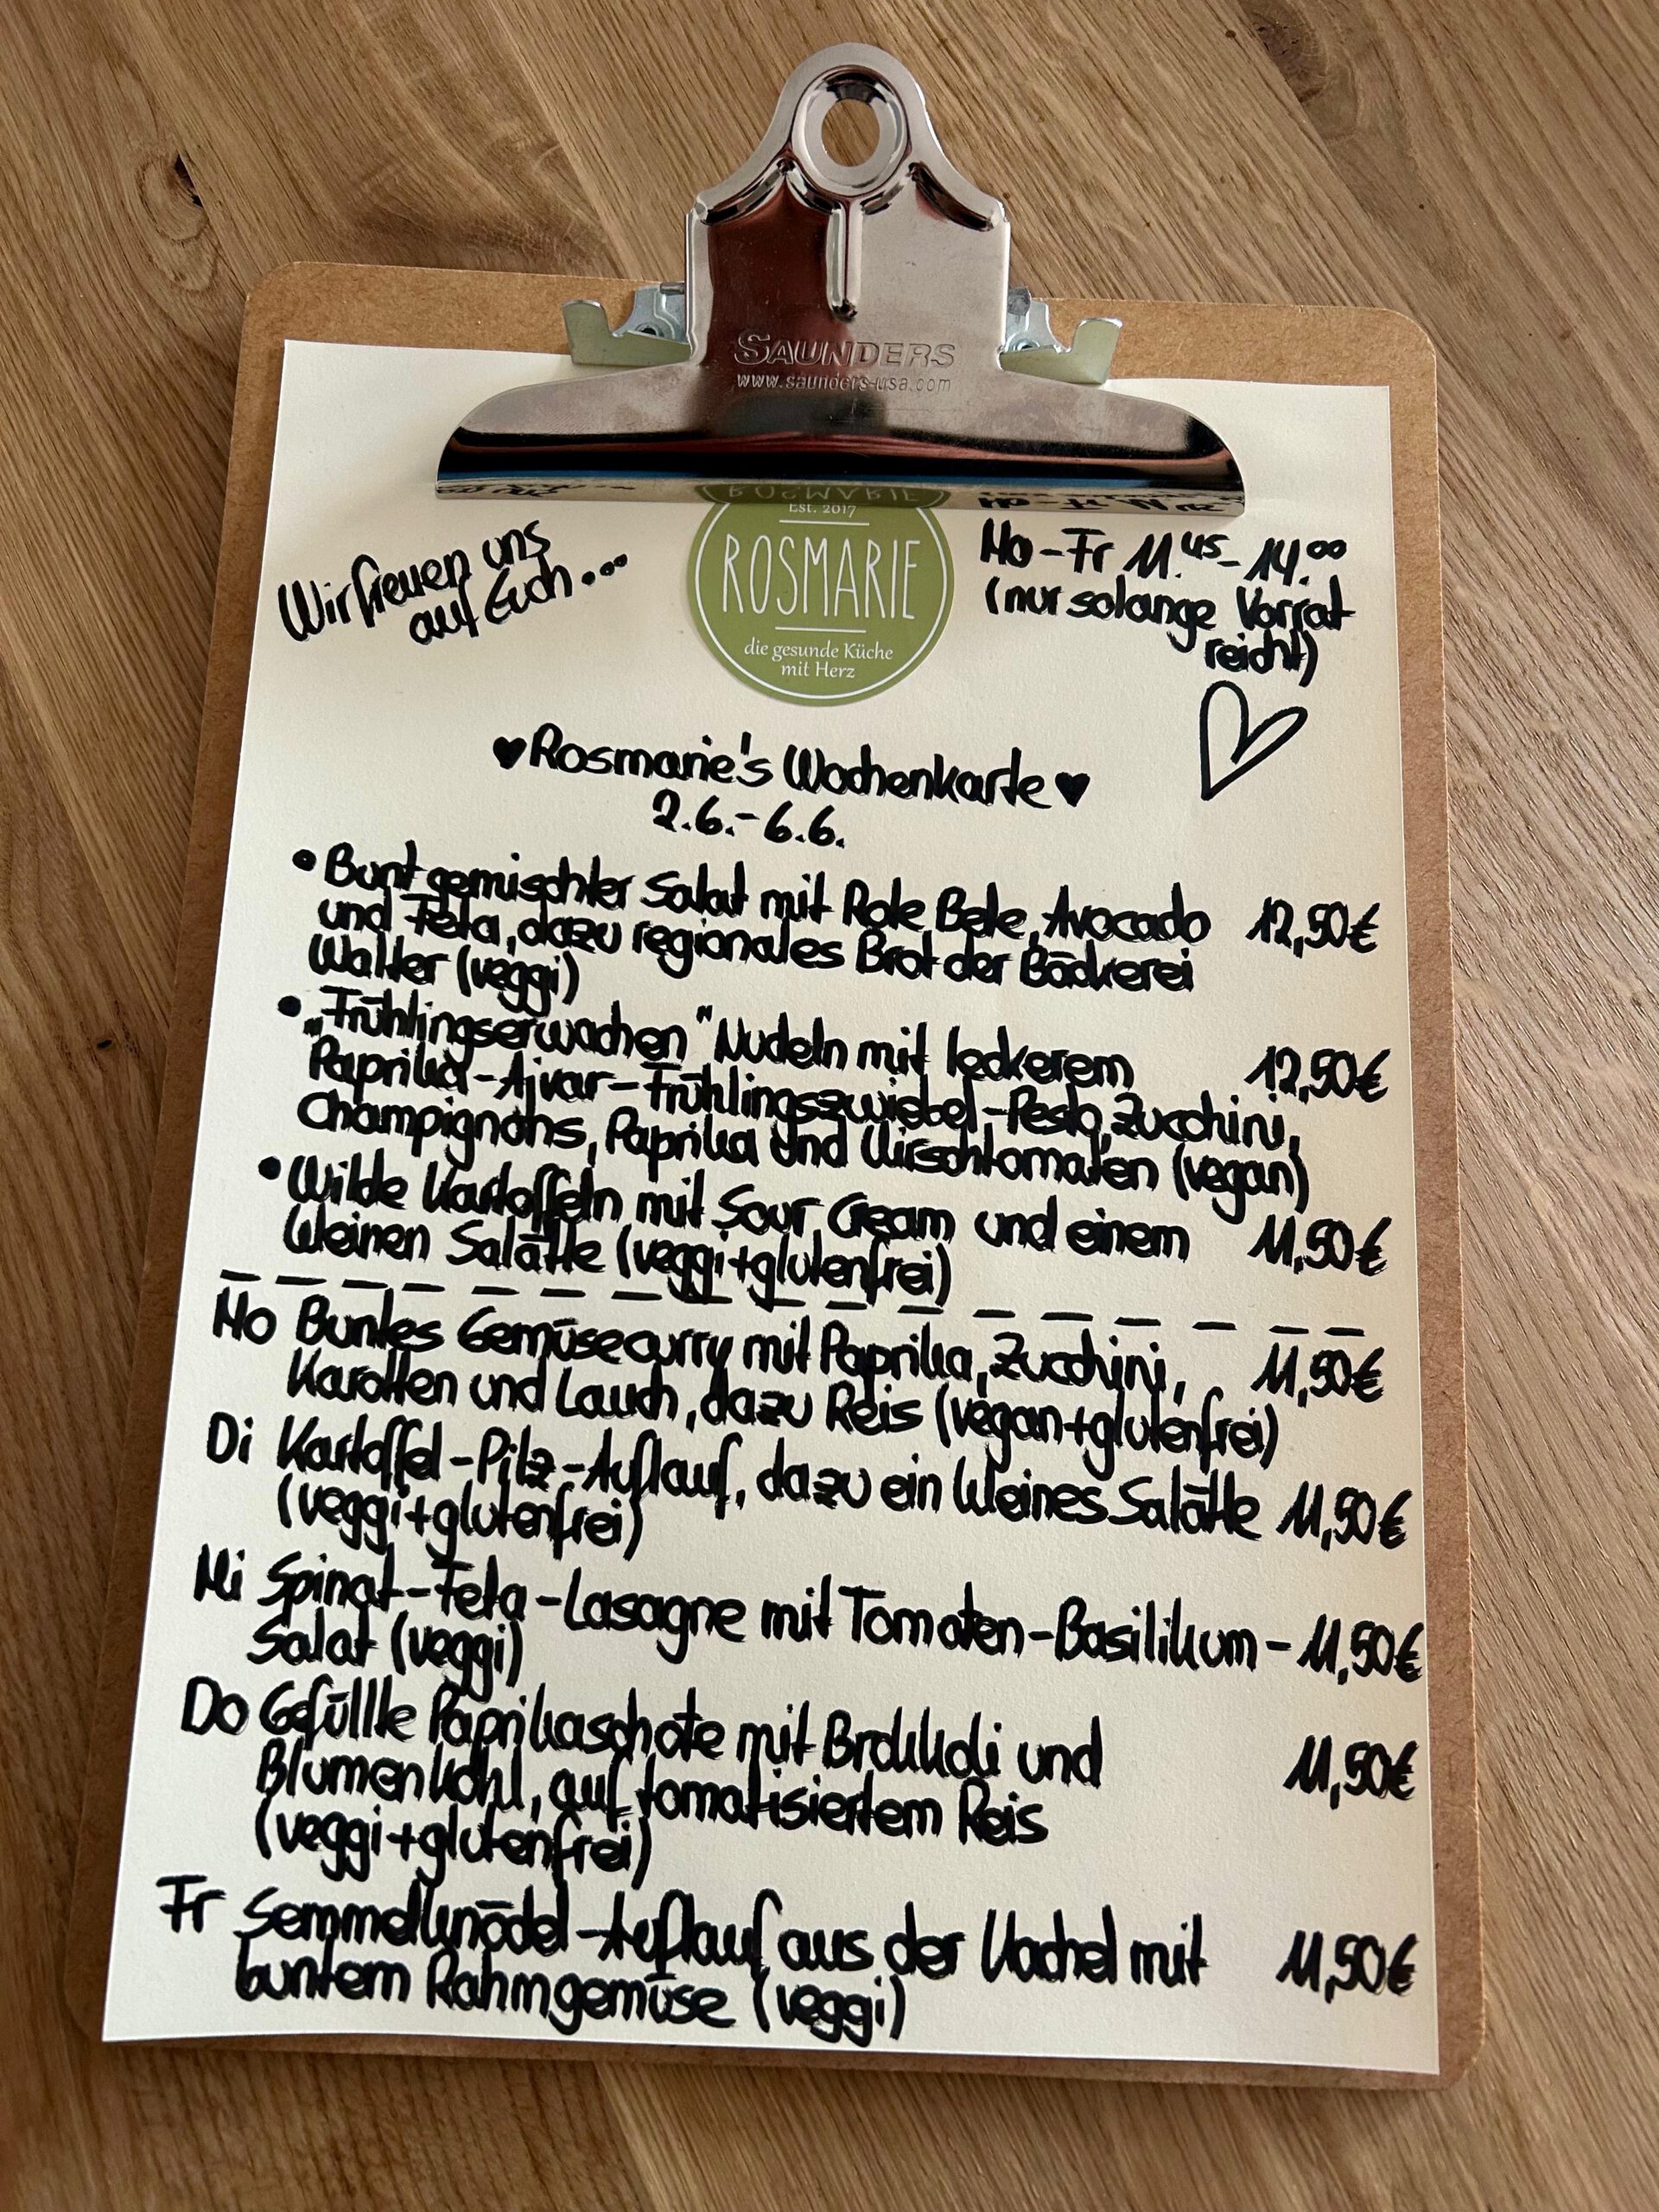 SAUNDERS
www.saunders-usa.com
Wir freuen uns
auf Euch...
EST. 2017
ROSMARIE
die gesunde Küche
mit Herz
Mo-Fr 11.45-14.00
(nur solange Vorrat
reicht)
♥Rosmarie's Wochenkarte♥
2.6.-6.6.
• Bunt gemischter Salat mit Rote Bete, Avocado 12,50€
und Feta, dazu regionales Brot der Bäckerei
Walter (veggi)
• „Frühlingserwachen" Nudeln mit leckerem 12,50€
Paprika-Ajvar-Frühlingszwiebel-Pesto, Zucchini,
Champignons, Paprika und Kirschtomaten (vegan)
• Wilde Kartoffeln mit Sour Cream und einem 11,50€
kleinen Salätle (veggi+glutenfrei)
Mo Buntes Gemüsecurry mit Paprika, Zucchini, 11,50€
Karotten und Lauch, dazu Reis (vegan+glutenfrei)
Di Kartoffel-Pilz-Auflauf, dazu ein kleines Salätle 11,50€
(veggi+glutenfrei)
Mi Spinat-Feta-Lasagne mit Tomaten-Basilikum- 11,50€
Salat (veggi)
Do Gefüllte Paprikaschote mit Brokkoli und 11,50€
Blumenkohl, auf tomatisiertem Reis
(veggi+glutenfrei)
Fr Semmelknödel-Auflauf aus der Kachel mit 11,50€
buntem Rahmgemüse (veggi)